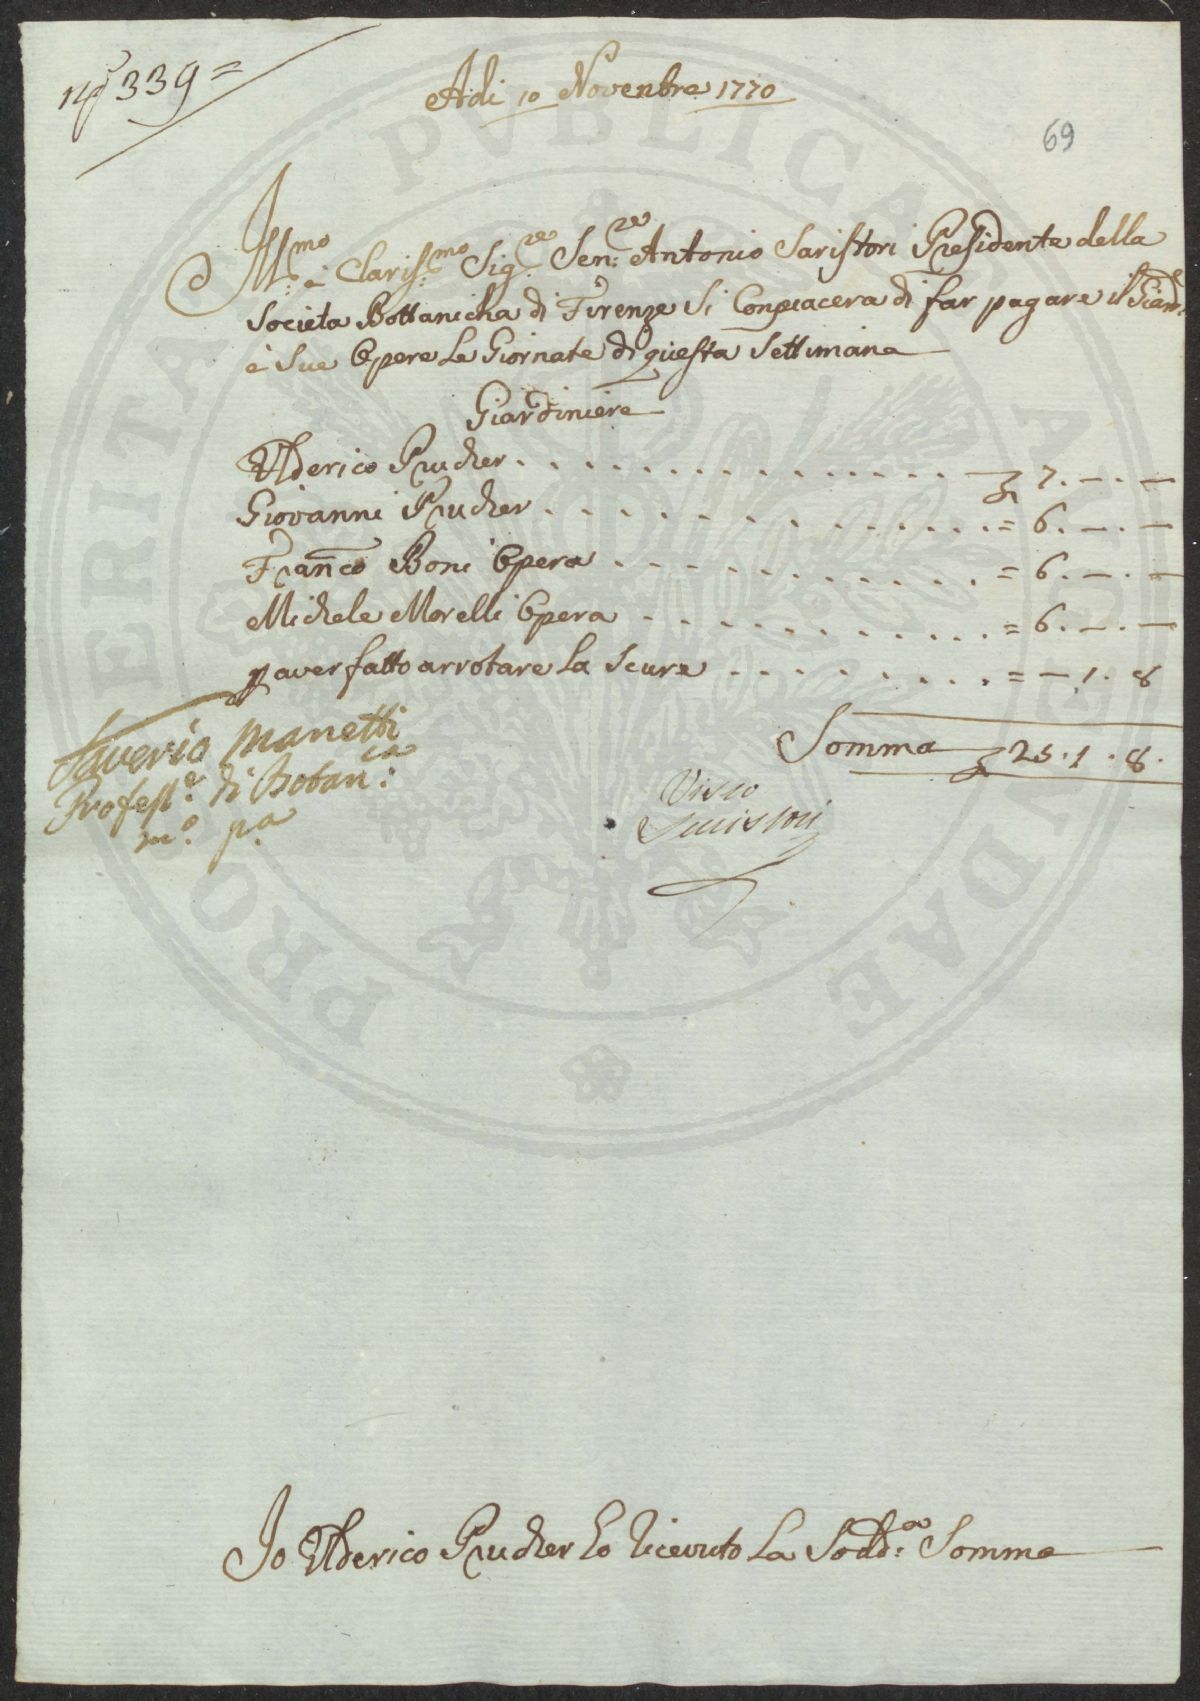 N.º 339 =
Adi 10 Novenbre 1770
69
Ill.mo è Claris.mo Sig.re Sen.re Antonio Saristori Presidente della
Societa Bottanicha di Firenze Si Conpiacera di far pagare il Giard.
è Sue Opere Le Giornate di questa Settimana
Giardiniere
Ulderico Prucher . . . . . . . . . . . . . . . 7. — . —
Giovanni Prucher . . . . . . . . . . . . . . . = 6. — . —
Franco Boni Opera . . . . . . . . . . . . . = 6. — . —
Michele Morelli Opera . . . . . . . . . . . . = 6. — . —
p aver fatto arrotare La Scure . . . . . . . . = — 1. 8
Somma 25. 1. 8.
Saverio Manetti
Profess.e di Botan.ca
m.o p.a
Visto
Saristori
Jo Ulderico Prucher ho ricevuto La Sodd.a Somma
PROSPERITATI PVBLICAE AVGENDAE